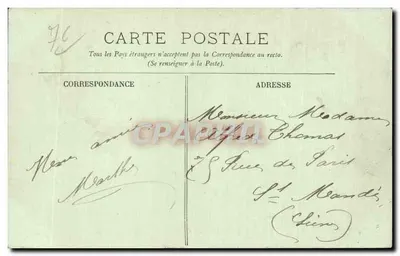 76
CARTE POSTALE
Tous les Pays étrangers n'acceptent pas la Correspondance au recto.
(Se renseigner à la Poste).
CORRESPONDANCE
ADRESSE
Monsieur Madame
Thomas
75 Rue de Paris
St Mandé
(Seine)
Marthe